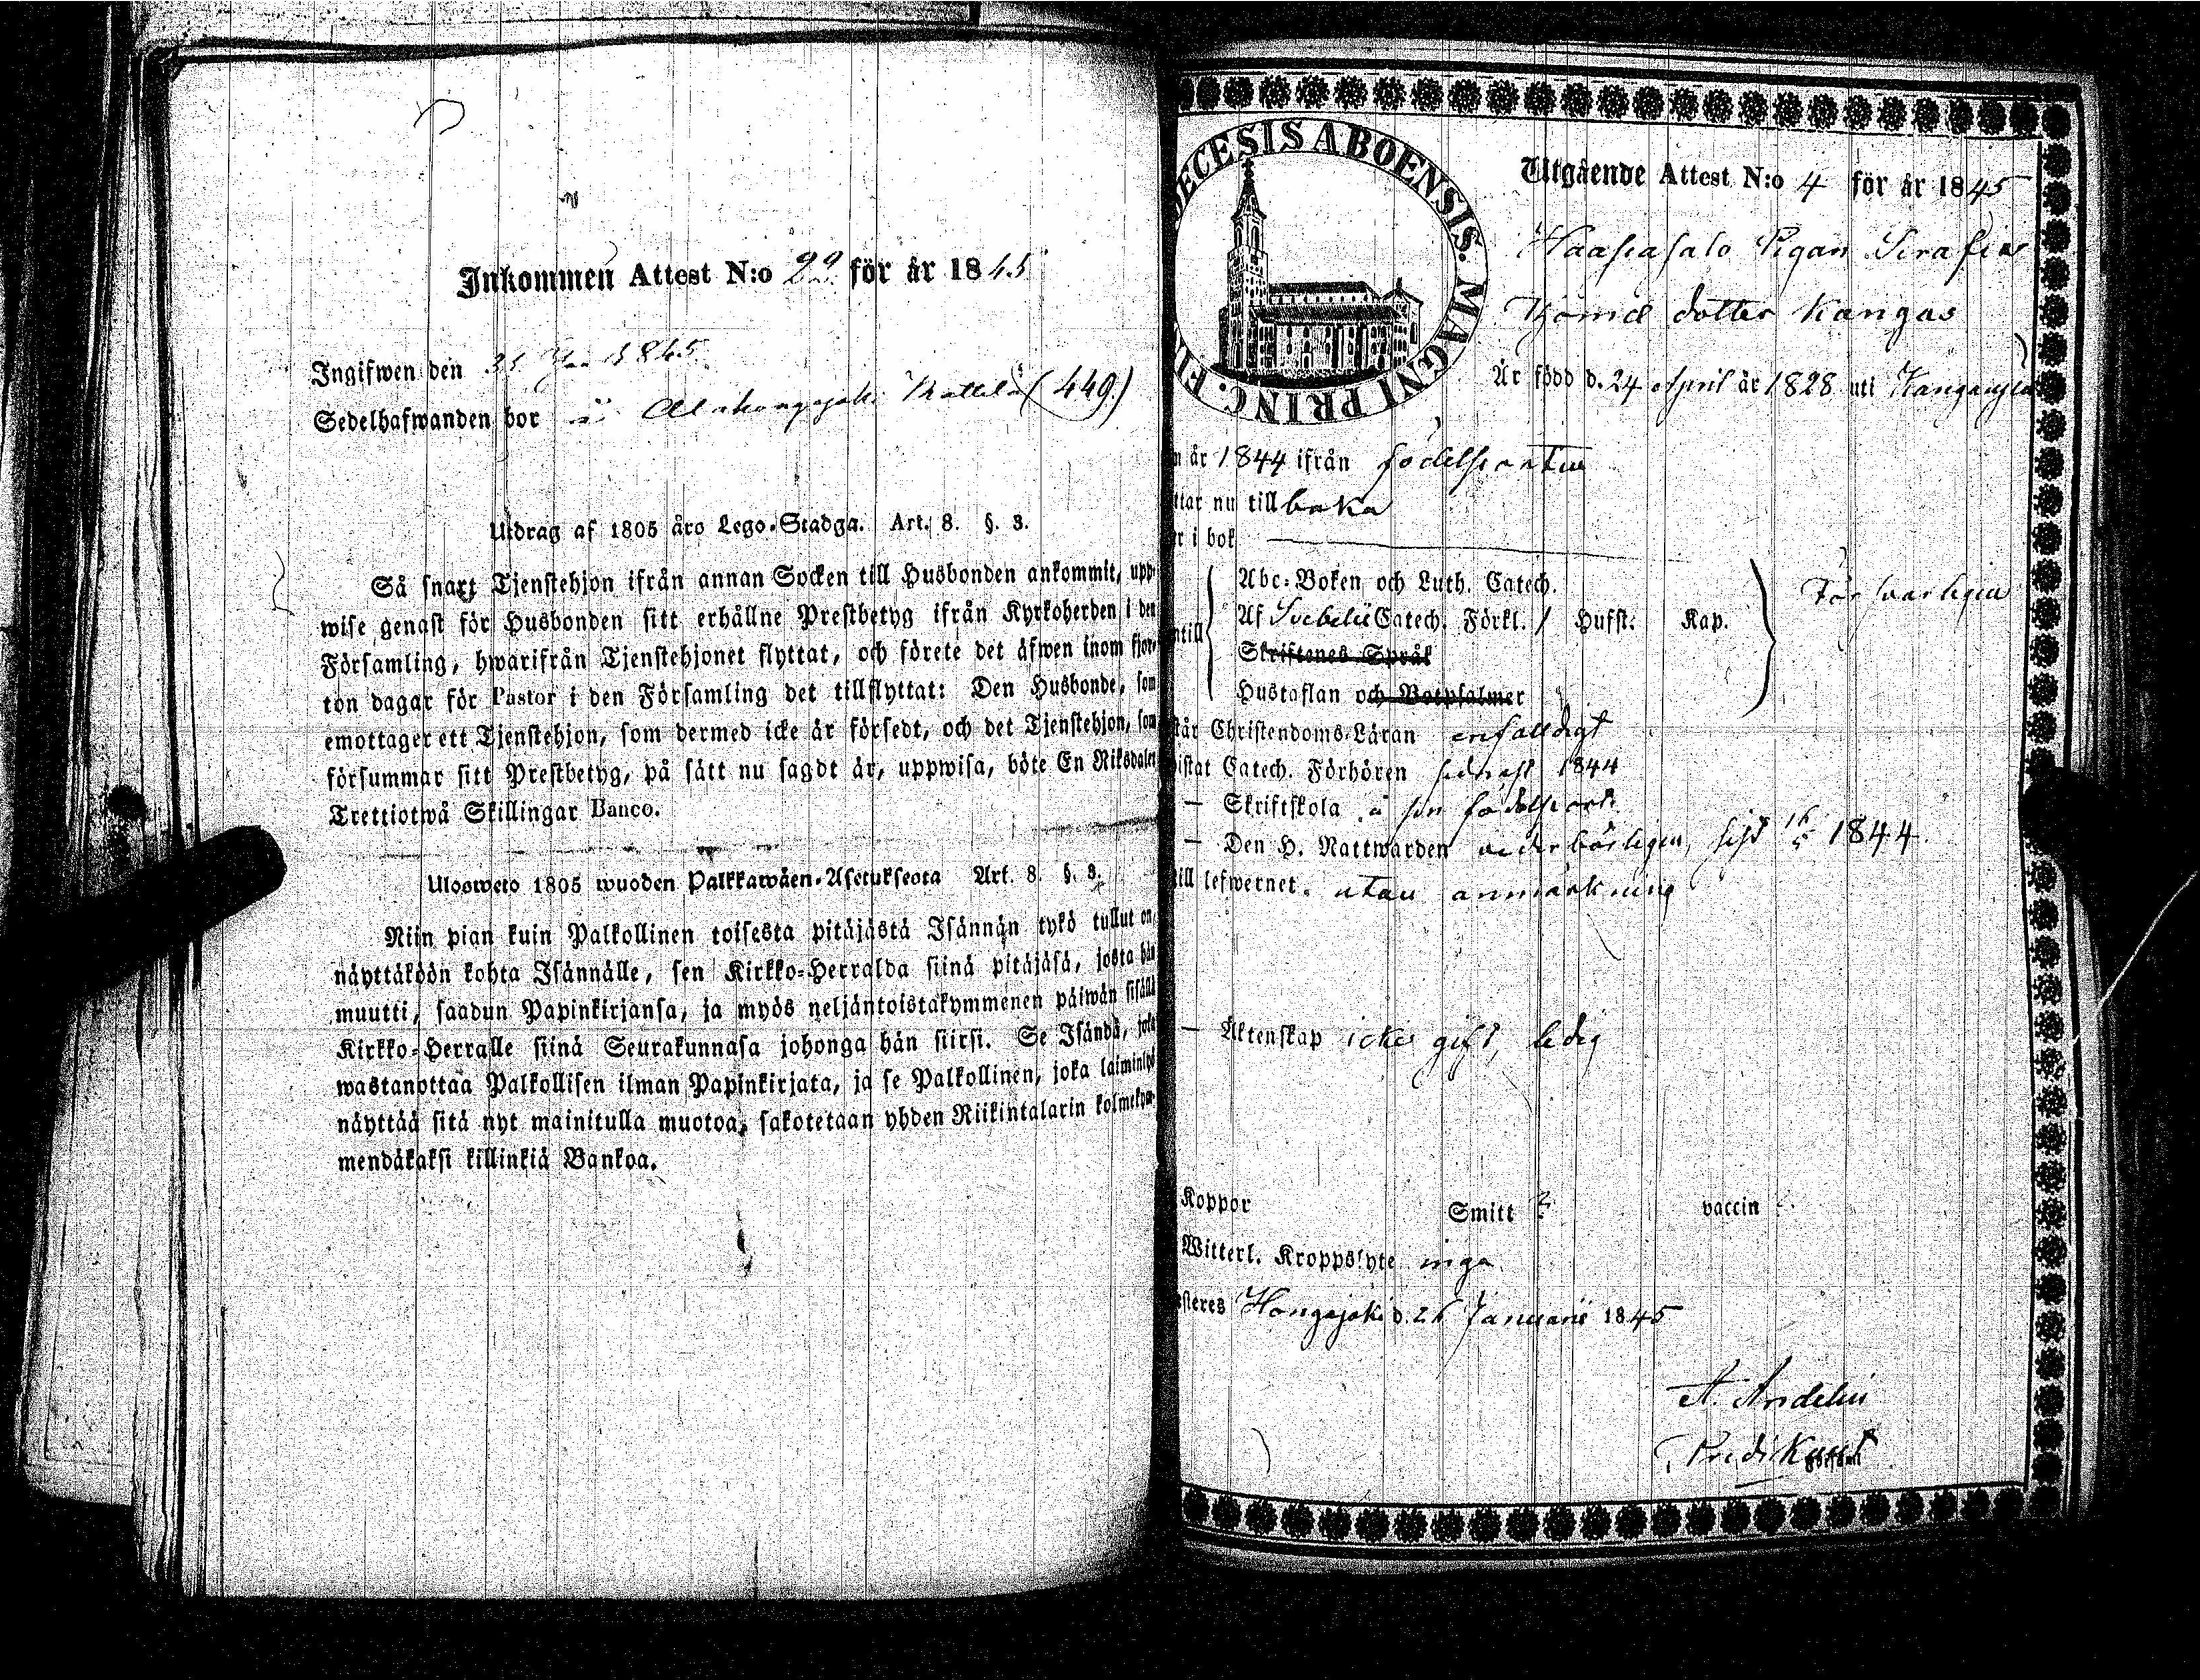 Inkommen Attest N:o 22. för år 1845
Ingifwen den 31 Jan 1845
Sedelhafwanden bor å Alahongojoki (449)
Utdrag af 1805 års Lego-Stadga. Art. 8. §. 3.
Så snart Tjenstehjon ifrån annan Socken till Husbonden ankommit, upp-
wise genast för Husbonden sitt erhållne Prestbetyg ifrån Kyrkoherden i den
Församling, hwarifrån Tjenstehjonet flyttat, och förete det äfwen inom fjor-
ton dagar för Pastor i den Församling det tillflyttat: Den Husbonde, som
emottager ett Tjenstehjon, som dermed icke är försedt, och det Tjenstehjon, som
försummar sitt Prestbetyg, på sätt nu sagdt är, uppwisa, böte En Riksdaler
Trettiotwå Skillingar Banco.
Ulosweto 1805 wuoden Palkkawäen-Asetuksesta Art. 8. §. 3.
Niin pian kuin Palkollinen toisesta pitäjästä Isännän tykö tullut on,
näyttäköön kohta Isännälle, sen Kirkko-Herralda siinä pitäjäsä, josta hän
muutti, saadun Papinkirjansa, ja myös neljäntoistakymmenen päiwän sisällä
Kirkko-Herralle siinä Seurakunnasa johonga hän siirsi. Se Isändä, joka
wastanottaa Palkollisen ilman Papinkirjata, ja se Palkollinen, joka laiminlyö
näyttää sitä nyt mainitulla muotoa, sakotetaan yhden Riikintalarin kolmekym-
mendäkaksi killinkiä Bankoa.
ECESIS ABOENSIS. MAGNI PRINC. FI
Utgående Attest N:o 4 för år 1845
Haapasalo Pigan Serafia
Thomæ dotter Kangas
Är född d. 24 April år 1828 uti
n år 1844 ifrån födelseorten
ttar nu tillbaka
r i bok
Abc-Boken och Luth. Catech.
Af Svebelii Catech. Förkl. / Hufst. Kap.
Skriftenes Språk
Hustaflan och Botpsalmer
Försvarligen
ntill
står Christendoms-Läran enfaldigt
wistat Catech. Förhören senast 1844
— Skriftskola å sin födelseort
— Den H. Nattwarden vederbörligen, sist 16/5 1844
till lefwernet. utan anmärkning
— Äktenskap icke gift, ledig
Koppor Smitt ? vaccin
Witterl. Kroppslyte inga
steres Hongojoki d. 26 Januarii 1845
A. Andelin
Predikant